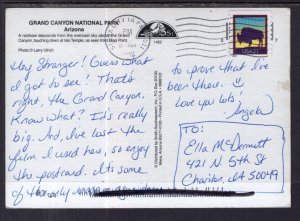 GRAND CANYON NATIONAL PARK
Arizona
A rainbow descends from the overcast sky above the Grand
Canyon, touching down at Isis Temple, as seen from Hopi Point.
Photo © Larry Ulrich
Hey Stranger! Guess what
I got to see! That's
right, the Grand Canyon.
Know what? It's really
big. And, I've lost the
film I used here, so enjoy
the postcard. It's some
of the only
to prove that I've
been there.
Love you lots!
Angela
TO:
Ella McDermott
421 N. 5th St
Chariton, IA 50049
USA21